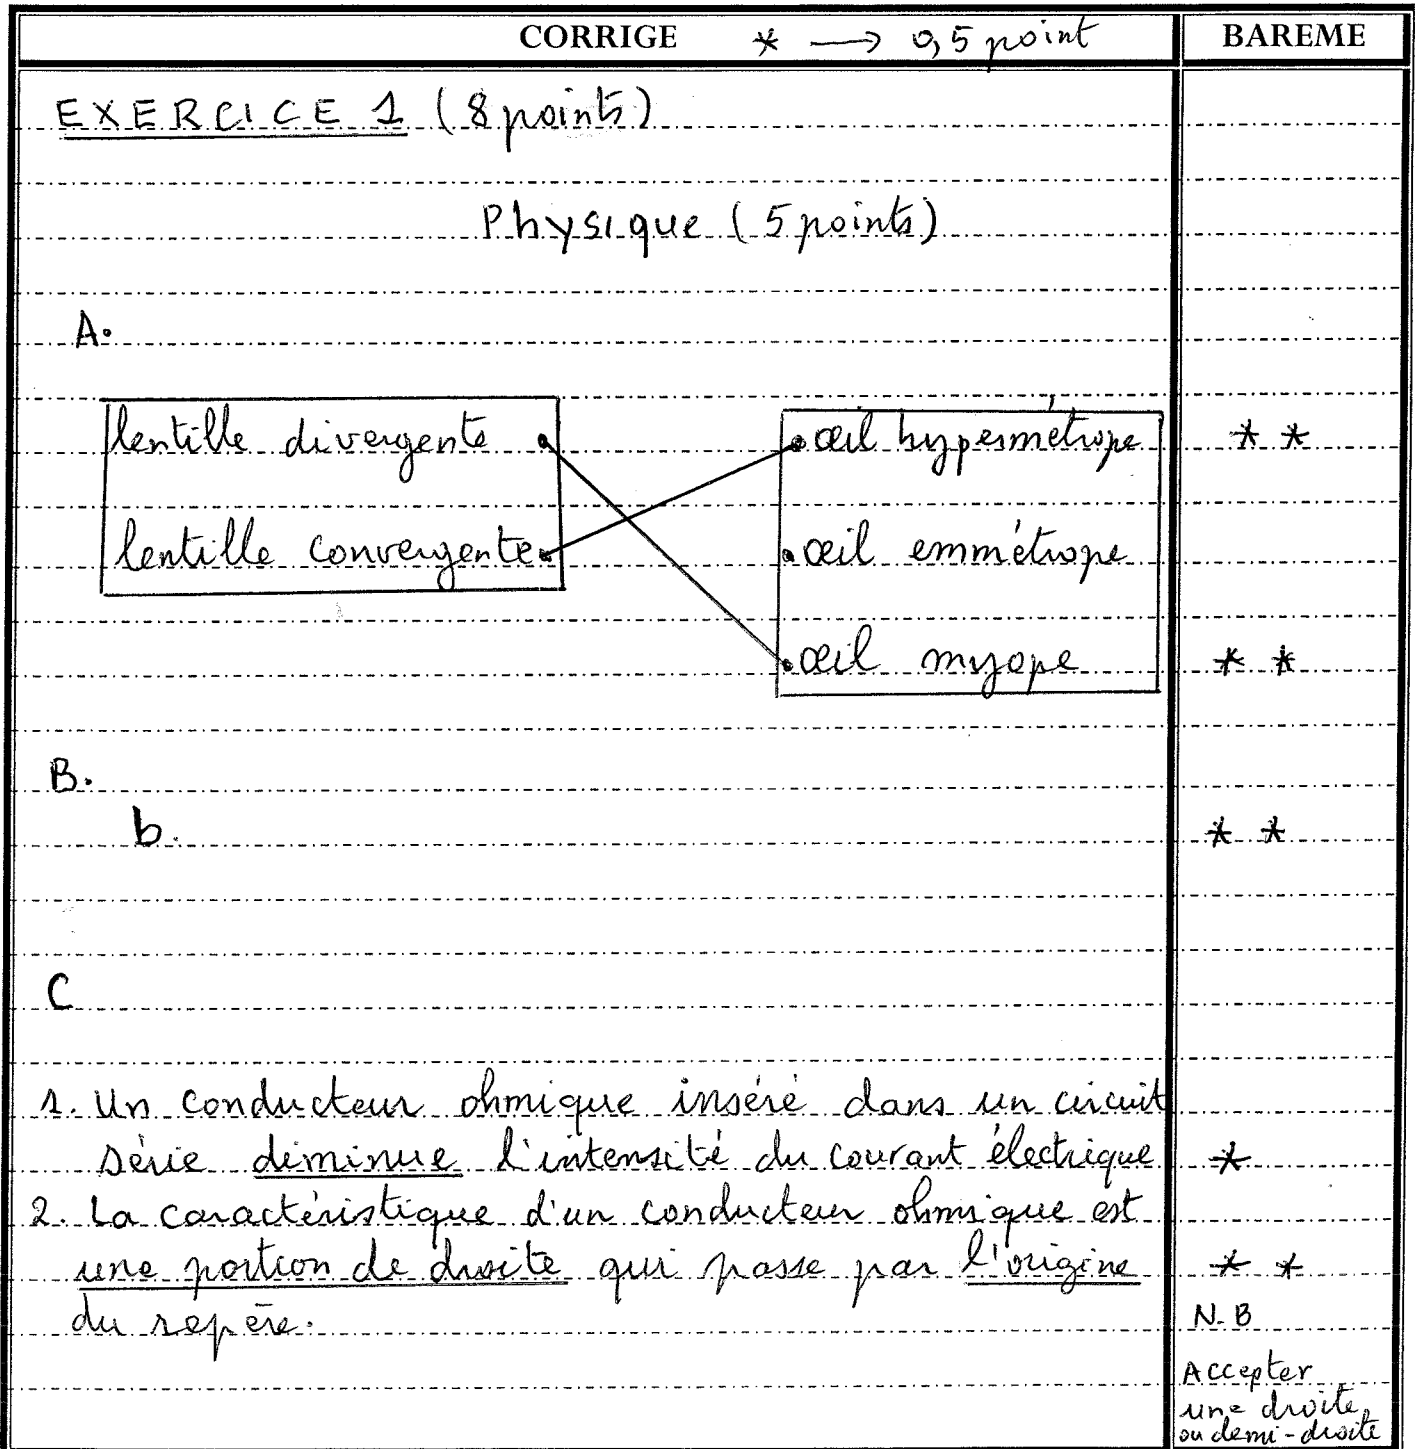 CORRIGE * → 0,5 point BAREME
EXERCICE 1 (8 points)
Physique (5 points)
A.
lentille divergente œil hypermétrope * *
lentille convergente œil emmétrope
œil myope * *
B.
b. * *
C
1. Un conducteur ohmique inséré dans un circuit
série diminue l'intensité du courant électrique *
2. La caractéristique d'un conducteur ohmique est
une portion de droite qui passe par l'origine * *
du repère. N.B
Accepter
une droite
ou demi-droite